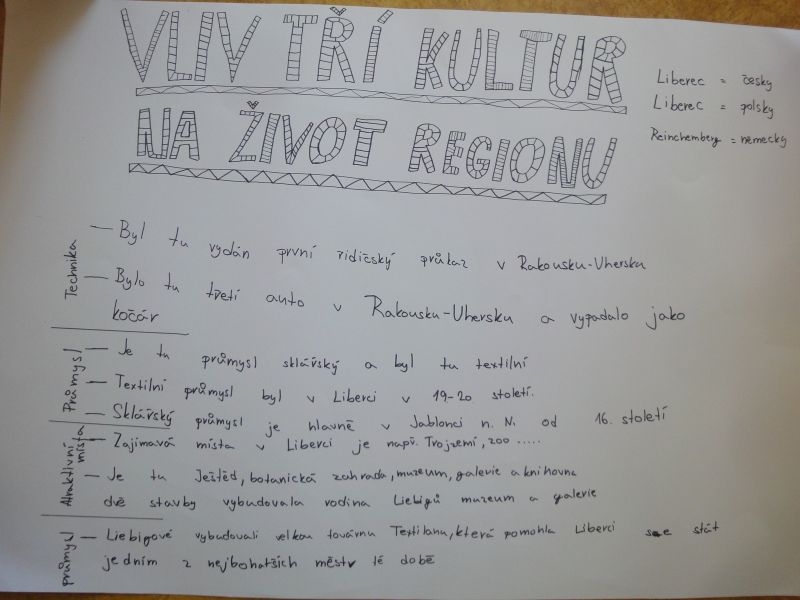 VLIV TŘÍ KULTUR
NA ŽIVOT REGIONU
Liberec = česky
Liberec = polsky
Reinchemberg = německy
Technika
— Byl tu vydán první řidičský průkaz v Rakousku-Uhersku
— Bylo tu třetí auto v Rakousku-Uhersku a vypadalo jako
kočár
Průmysl
— Je tu průmysl sklářský a byl tu textilní
— Textilní průmysl byl v Liberci v 19-20 století.
— Sklářský průmysl je hlavně v Jablonci n. N. od 16. století
Atraktivní místa
— Zajímavá místa v Liberci je např. Trojzemí, zoo .....
— Je tu Ještěd, botanická zahrada, muzeum, galerie a knihovna
dvě stavby vybudovala rodina Liebigů muzeum a galerie
průmysl
— Liebigové vybudovali velkou továrnu Textilanu, která pomohla Liberci se stát
jedním z nejbohatších městv té době